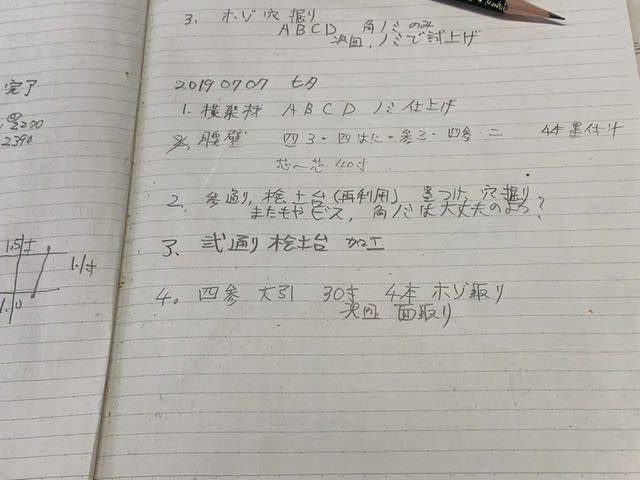 完了
2390
1.5寸
1.1寸
1.0
3. ホゾ穴 掘り
ABCD 角ノミのみ
次回,ノミで試上げ
20190707 七夕
1. 横架材 ABCD ノミ仕上げ
2. 腰壁 四3・四はた・参3・四参・二 4本墨仕
芯〜芯 40寸
2. 参通り,桧土台(再利用) 墨つけ,穴掘り
またもや ビス,角ノミは大丈夫のよう?
3. 弐通り 桧土台 加工
4. 四参 大引 30寸 4本 ホゾ取り
次回 面取り